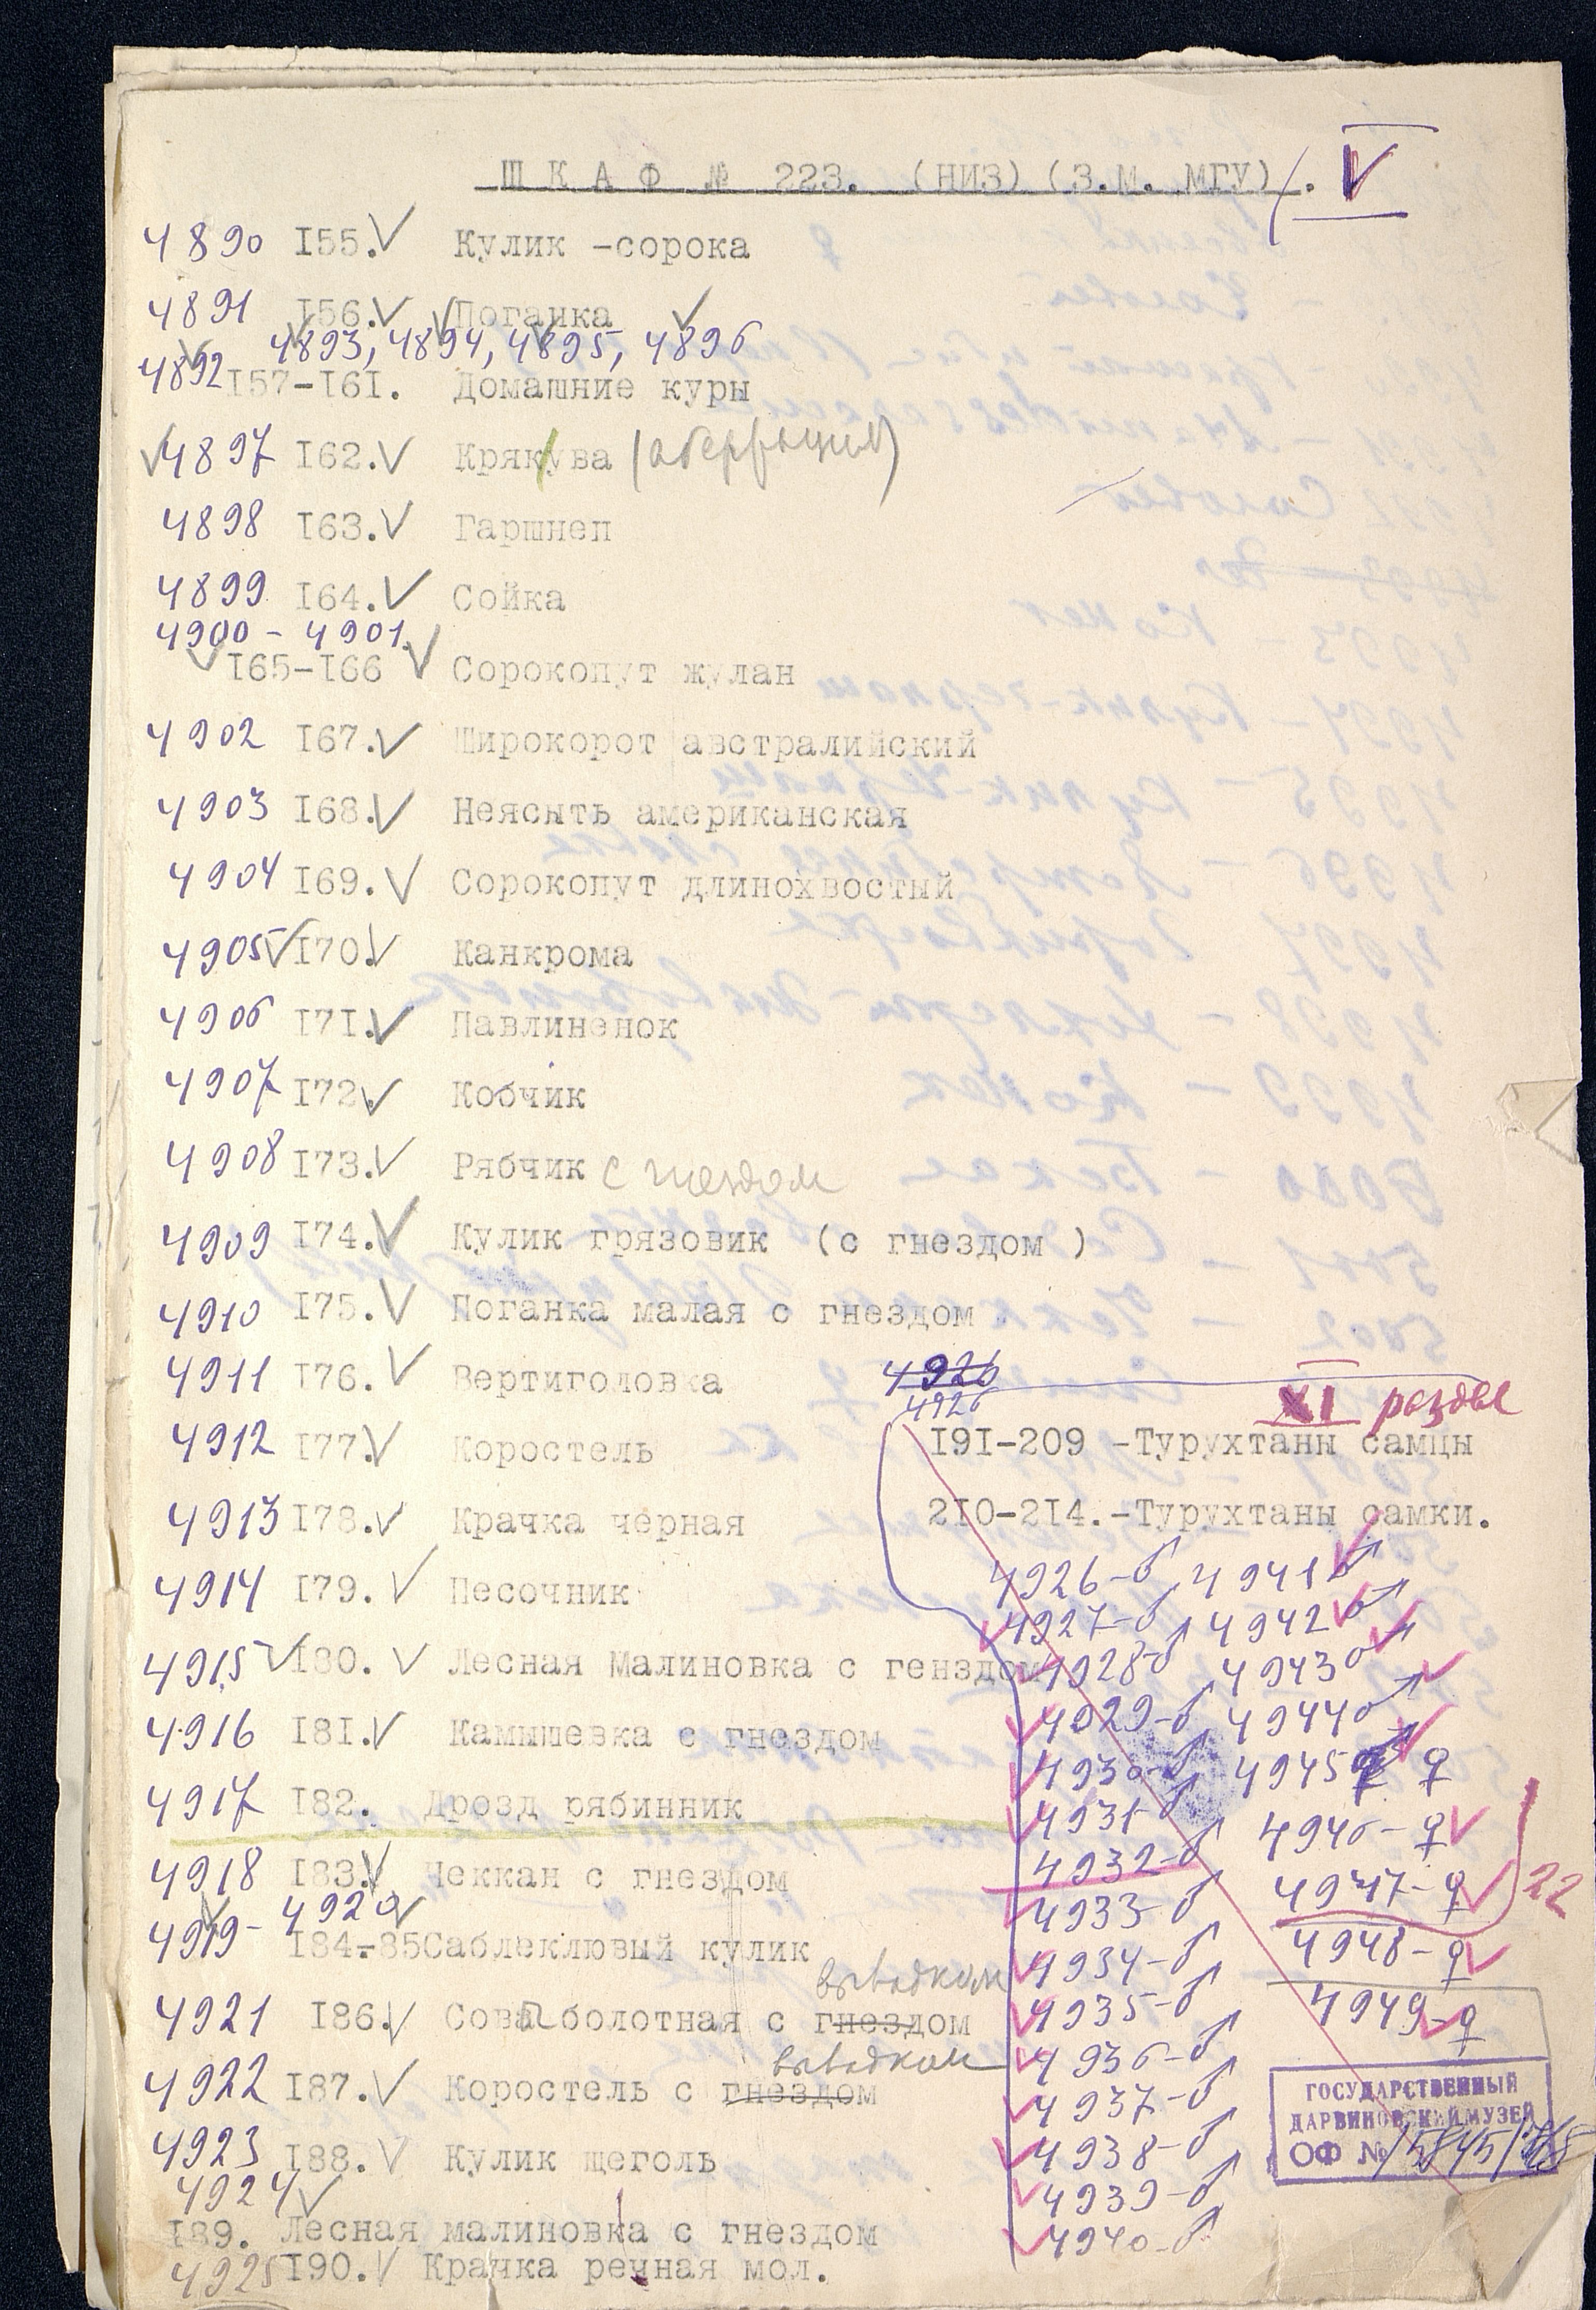 Ш К А Ф № 223. (НИЗ) (З.М. МГУ). V
4890 I55. Кулик -сорока
4891 I56. Поганка
4893, 4894, 4895, 4896
4892 I57-I6I. Домашние куры
4897 I62. Кряква (аберрация)
4898 I63. Гаршнеп
4899 I64. Сойка
4900 - 4901
I65-I66 Сорокопут жулан
4902 I67. Широкорот австралийский
4903 I68. Неясыть американская
4904 I69. Сорокопут длинохвостый
4905 I70. Канкрома
4906 I7I. Павлиненок
4907 I72. Кобчик
4908 I73. Рябчик с гнездом
4909 I74. Кулик грязовик (с гнездом )
4910 I75. Поганка малая с гнездом
4911 I76. Вертиголовка
4912 I77. Коростель
4913 I78. Крачка черная
4914 I79. Песочник
4915 I80. Лесная Малиновка с генздом
4916 I8I. Камышевка с гнездом
4917 I82. Дрозд рябинник
4918 I83. Чеккан с гнездом
4919- 4920
I84-85 Саблеклювый кулик
выводком
4921 I86. Сова болотная с гнездом
выводком
4922 I87. Коростель с гнездом
4923 I88. Кулик щеголь
4924
I89. Лесная малиновка с гнездом
4925 I90. Крачка речная мол.
4926
4926
XI раздел
I9I-209 -Турухтаны самцы
2I0-2I4.-Турухтаны самки.
4926-♂ 4941♂
4927-♂ 4942♂
4928-♂ 4943♂
4929-♂ 4944♂
4930-♂ 4945 ♀
4931-♂ 4946-♀
4932-♂ 4947-♀ 22
4933-♂ 4948-♀
4934-♂
4935-♂ 4949-♀
4936-♂
4937-♂
4938-♂
4939-♂
4940-♂
ГОСУДАРСТВЕННЫЙ
ДАРВИНОВСКИЙ МУЗЕЙ
ОФ №